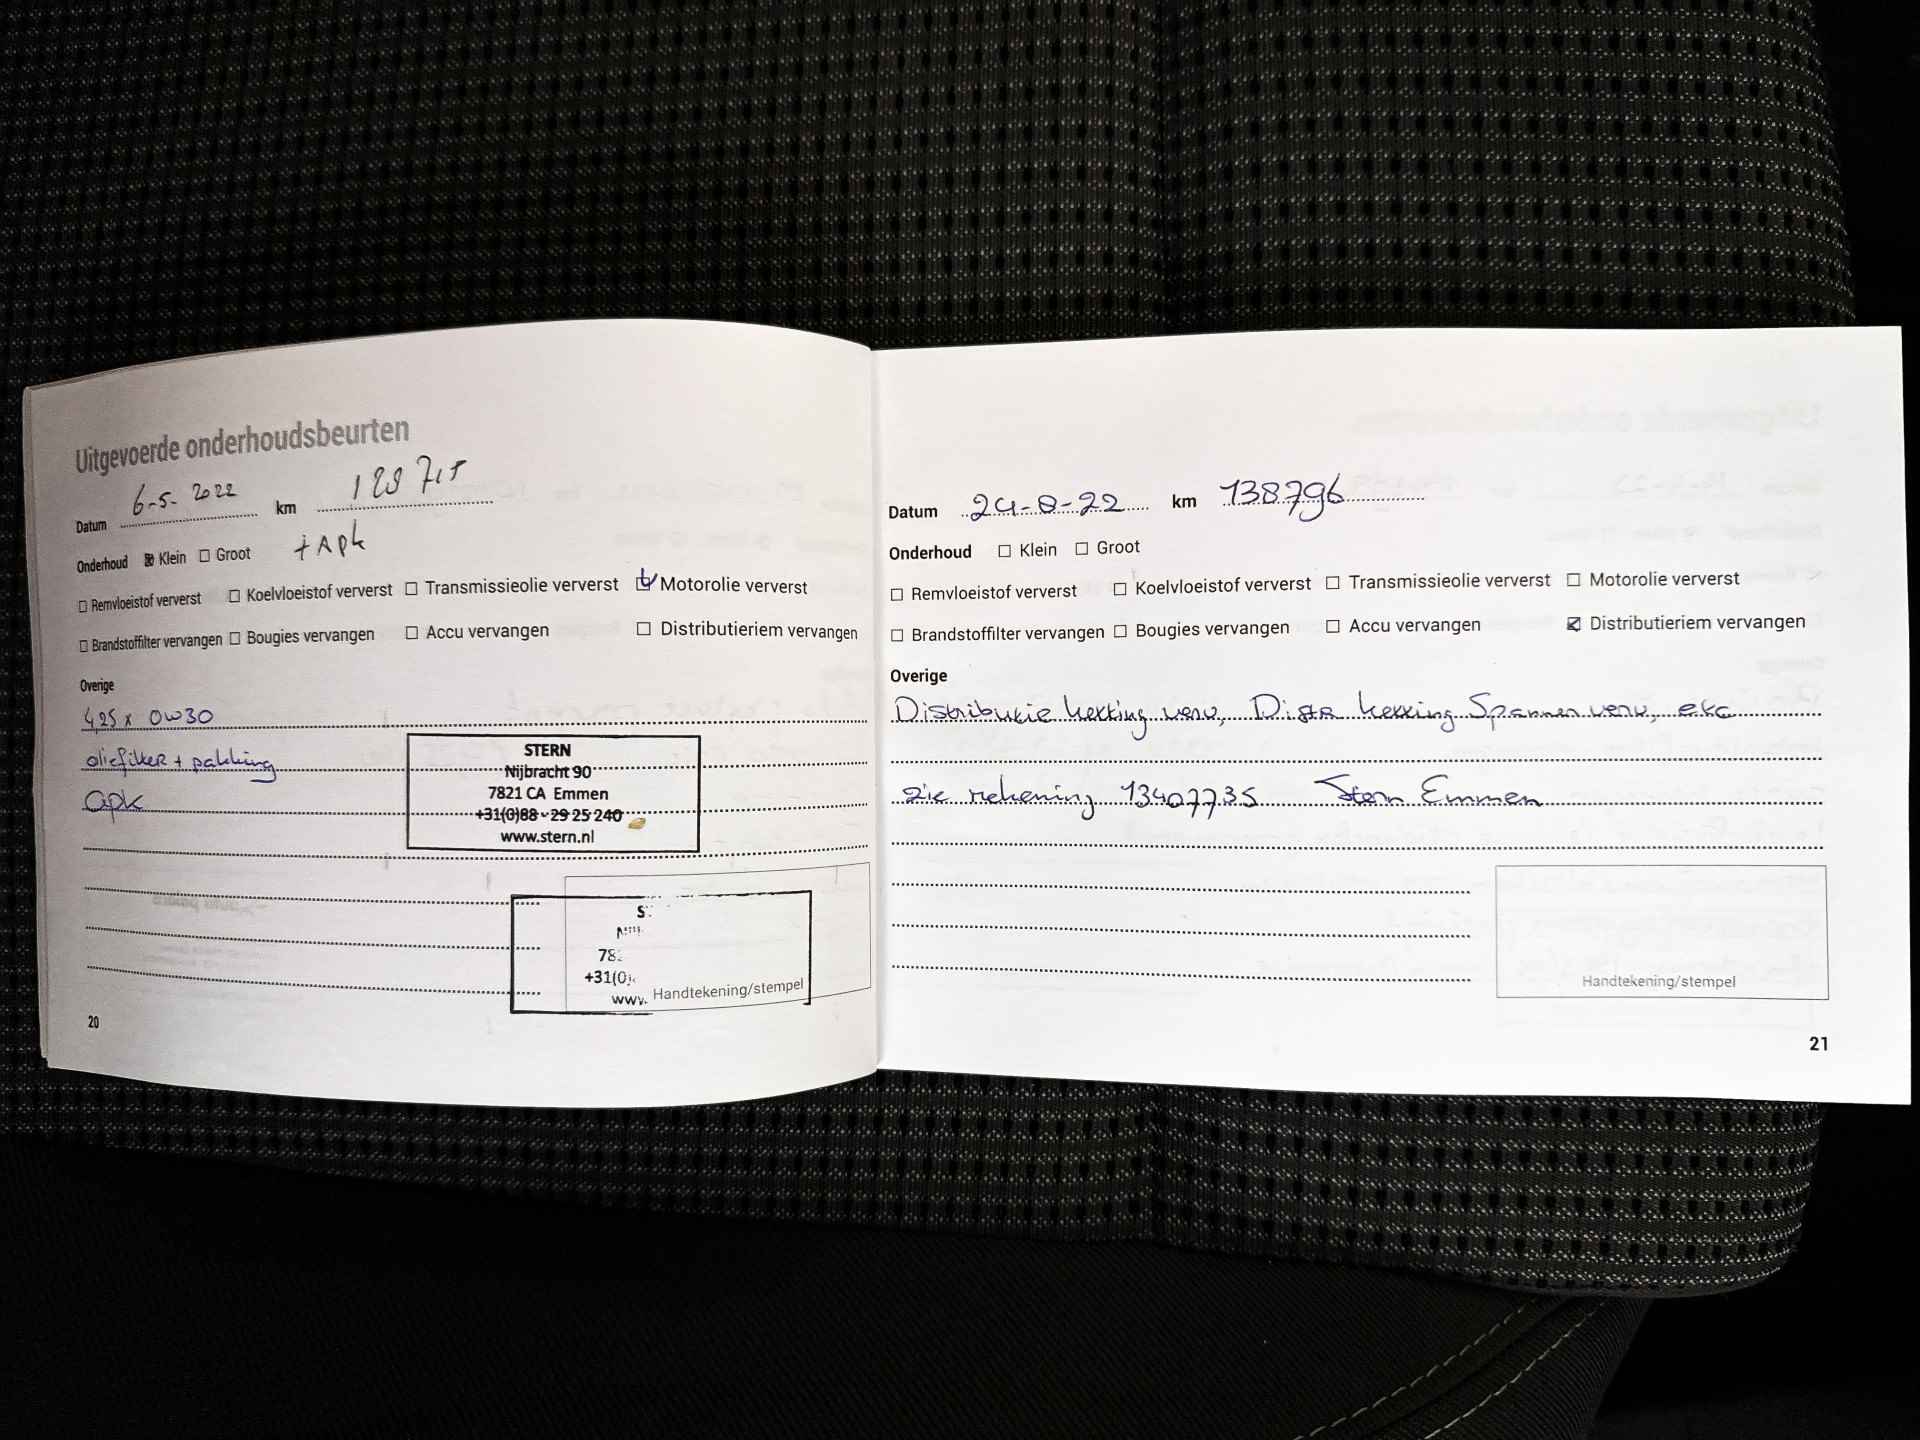 Uitgevoerde onderhoudsbeurten
Datum 6-5-2022 km
Onderhoud Klein Groot + Apk
Remvloeistof ververst Koelvloeistof ververst Transmissieolie ververst Motorolie ververst
Brandstoffilter vervangen Bougies vervangen Accu vervangen Distributieriem vervangen
Overige
4,25 x 0W30
oliefilter + pakking
apk
STERN
Nijbracht 90
7821 CA Emmen
+31(0)88 - 29 25 240
www.stern.nl
S
78
+31(0)
www.
Handtekening/stempel
20
Datum 24-8-22 km 138796
Onderhoud Klein Groot
Remvloeistof ververst Koelvloeistof ververst Transmissieolie ververst Motorolie ververst
Brandstoffilter vervangen Bougies vervangen Accu vervangen Distributieriem vervangen
Overige
Distributie ketting verv, Distr ketting Spanner verv, etc
zie rekening 13407735 Stern Emmen
Handtekening/stempel
21